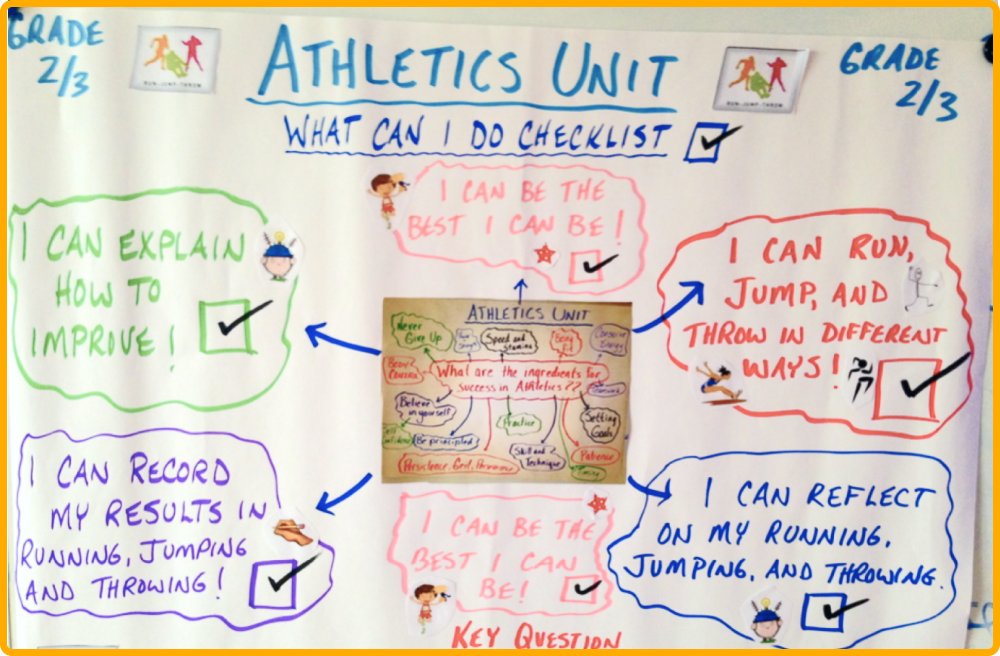 GRADE
2/3
RUN-JUMP-THROW
ATHLETICS UNIT
RUN-JUMP-THROW
GRADE
2/3
WHAT CAN I DO CHECKLIST
I CAN BE THE
BEST I CAN BE!
I CAN EXPLAIN
HOW TO
IMPROVE!
I CAN RUN,
JUMP, AND
THROW IN DIFFERENT
WAYS!
ATHLETICS UNIT
Never
Give Up
Speed and
Stamina
Being
Fit
What are the ingredients for
success in Athletics??
Believe
in yourself
Practice
Setting
Goals
Be principled
Skill and
Technique
Patience
I CAN RECORD
MY RESULTS IN
RUNNING, JUMPING
AND THROWING!
I CAN BE THE
BEST I CAN
BE!
I CAN REFLECT
ON MY RUNNING,
JUMPING, AND THROWING.
KEY QUESTION